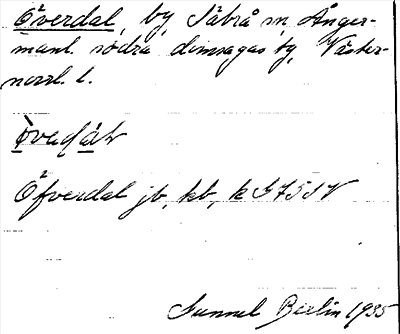 Överdal, by, Säbrå sn, Ånger-
manl. södra domsagas tg, Väster-
norrl. l.
Öfverdal jb, kb, k
Gunnel Bixlin 1935